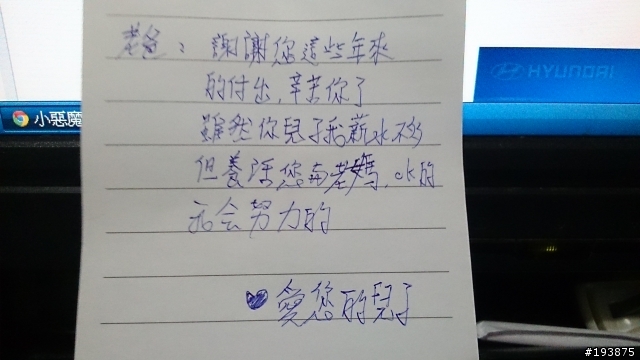 老爸：謝謝您這些年來
的付出，辛苦你了
雖然你兒子我薪水不多
但養活您与老媽，ok的
我会努力的
♥愛您的兒子
小惡魔
HYUNDAI
#193875